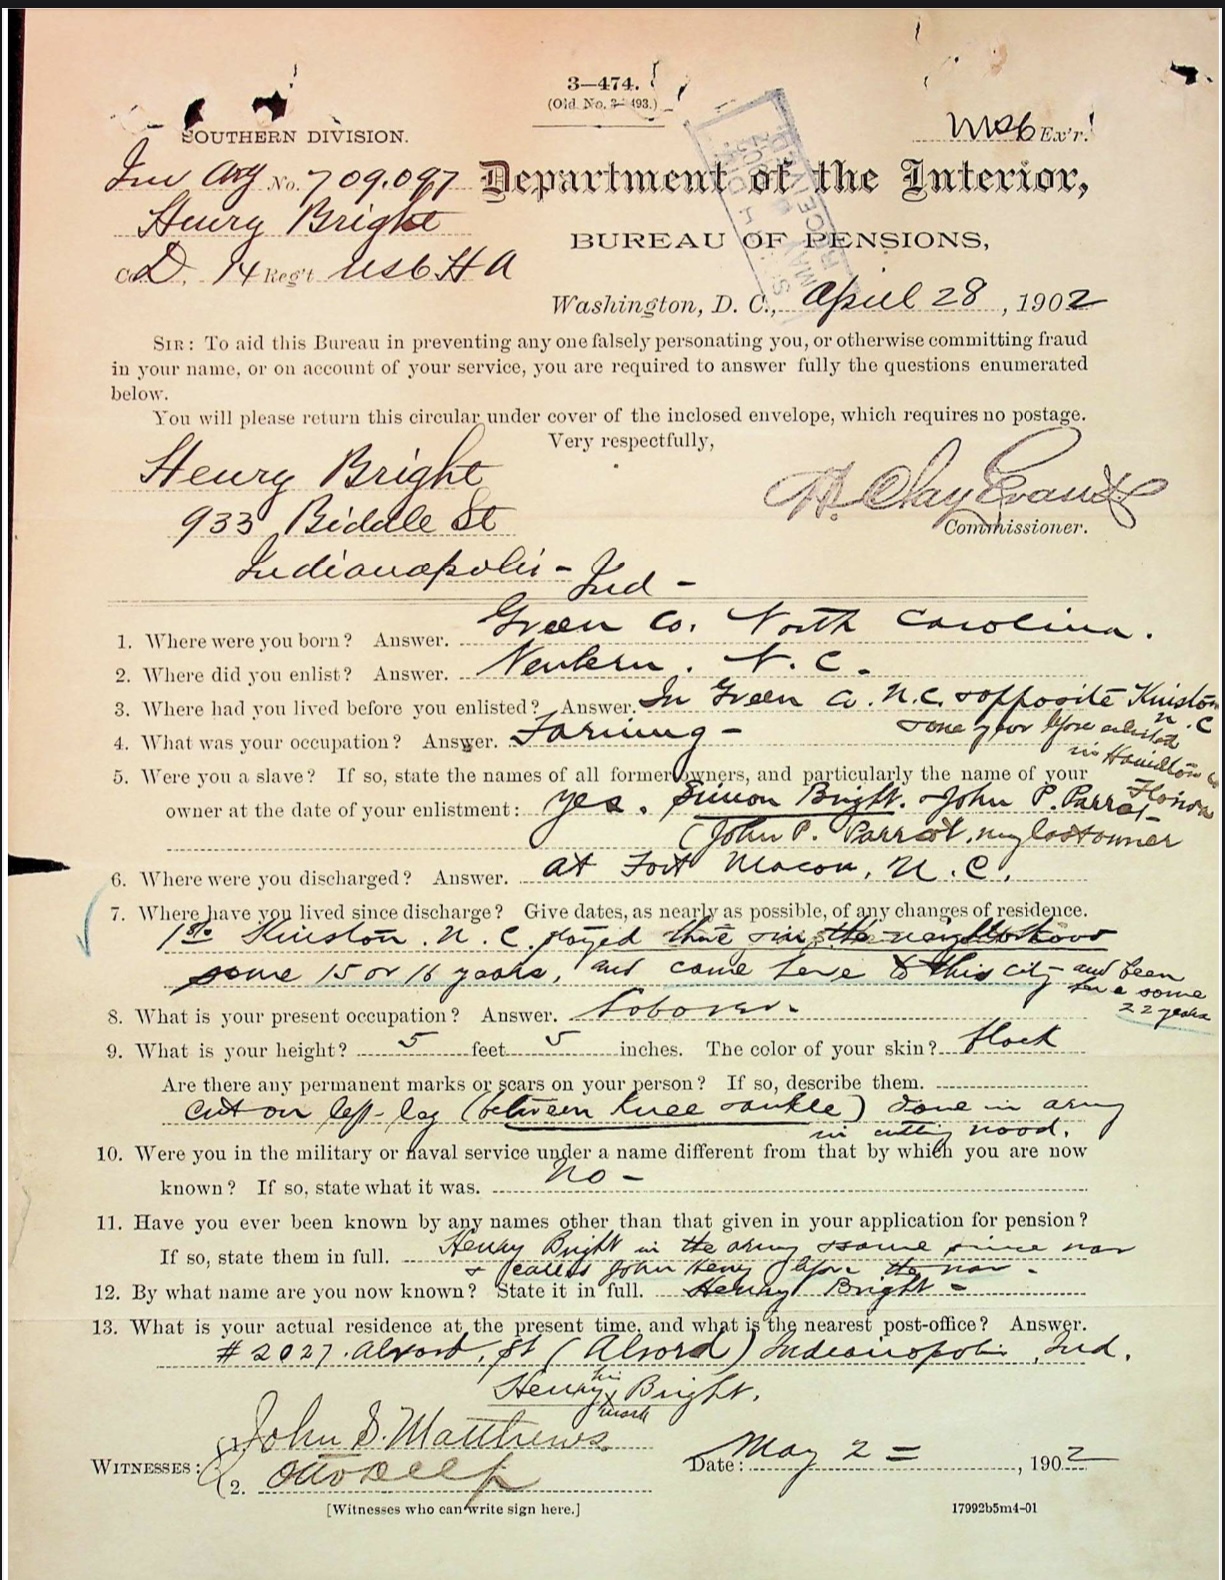 3—474.
(Old No. 3—493.)
SOUTHERN DIVISION.
Ex'r.
Inv Org No. 709.097
Department of the Interior,
Henry Bright
BUREAU OF PENSIONS,
Co. D, 14 Reg't USCHA
Washington, D. C., April 28, 1902
SIR: To aid this Bureau in preventing any one falsely personating you, or otherwise committing fraud
in your name, or on account of your service, you are required to answer fully the questions enumerated
below.
You will please return this circular under cover of the inclosed envelope, which requires no postage.
Very respectfully,
Henry Bright
H. Clay Evans
933 Biddle St
Commissioner.
Indianapolis - Ind -
1. Where were you born? Answer. Green Co. North Carolina.
2. Where did you enlist? Answer. Newbern. N. C.
3. Where had you lived before you enlisted? Answer. In Green Co. N.C. & opposite Kinston N.C
& one year before enlisted
in Hamilton Co
Florida
4. What was your occupation? Answer. Farming -
5. Were you a slave? If so, state the names of all former owners, and particularly the name of your
owner at the date of your enlistment: yes. Simon Bright. & John P. Parrot
(John P. Parrot, my last owner
6. Where were you discharged? Answer. at Fort Macon, N. C.
7. Where have you lived since discharge? Give dates, as nearly as possible, of any changes of residence.
1st Kinston. N. C. stayed there & in the neighborhood
some 15 or 16 years, and came here to this city and been
here some
22 years
8. What is your present occupation? Answer. Laborer.
9. What is your height? 5 feet 5 inches. The color of your skin? black
Are there any permanent marks or scars on your person? If so, describe them.
cut on left leg (between knee & ankle) done in army
in cutting wood.
10. Were you in the military or naval service under a name different from that by which you are now
known? If so, state what it was. No -
11. Have you ever been known by any names other than that given in your application for pension?
If so, state them in full. Henry Bright in the army & same since war
& called John Henry before the war -
12. By what name are you now known? State it in full. Henry Bright -
13. What is your actual residence at the present time, and what is the nearest post-office? Answer.
# 2027. Alvord, St (Alvord) Indianapolis, Ind.
his
Henry X Bright.
mark
WITNESSES: 1. John S. Matthews
2. Otto
Date: May 2 =, 1902
[Witnesses who can write sign here.]
17992b5m4-01